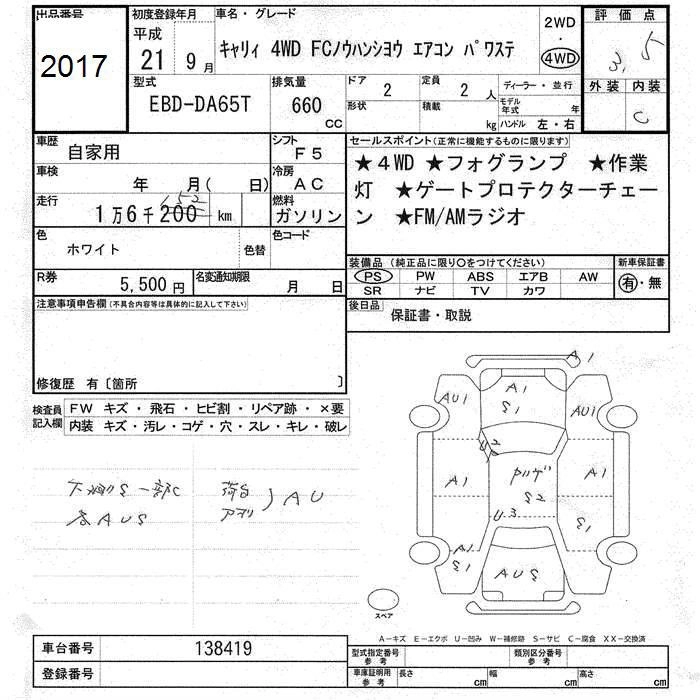 出品番号
2017
初度登録年月
平成
21 9月
車名・グレード
キャリィ 4WD FCノウハンシヨウ エアコン パワステ
2WD
・
4WD
評価点
3.5
外装 内装
C
型式
EBD-DA65T
排気量
660
CC
ドア
2
定員
2 人
形状
積載
kg
ディーラー・並行
モデル年式 年
ハンドル 左・右
車歴
自家用
シフト
F5
車検
年 月( 日)
冷房
AC
走行
1万6千200 km
152
燃料
ガソリン
色
ホワイト
色替
色コード
R券
5,500円
名変通知期限
月 日
セールスポイント(正常に機能するものに限ります)
★4WD ★フォグランプ ★作業
灯 ★ゲートプロテクターチェー
ン ★FM/AMラジオ
装備品 (純正品に限り〇をつけてください)
PS PW ABS エアB AW
SR ナビ TV カワ
新車保証書
有・無
後日品
保証書・取説
注意事項申告欄(不具合内容等は具体的に記入して下さい)
修復歴 有〔箇所 〕
検査員記入欄
FW キズ・飛石・ヒビ割・リペア跡・×要
内装 キズ・汚レ・コゲ・穴・スレ・キレ・破レ
下廻りS一部C
各AUS
荷台
アオリ
AU
A1
A1
S1
AU1
AU1
U2
A1
A1
S2
U3
S1
A1
S1
AUS
スペア
A－キズ E－エクボ U－凹み W－補修跡 S－サビ C－腐食 XX－交換済
車台番号
138419
登録番号
型式指定番号
参考
類別区分番号
参考
車庫証明用
参考
長さ cm
幅 cm
高さ cm